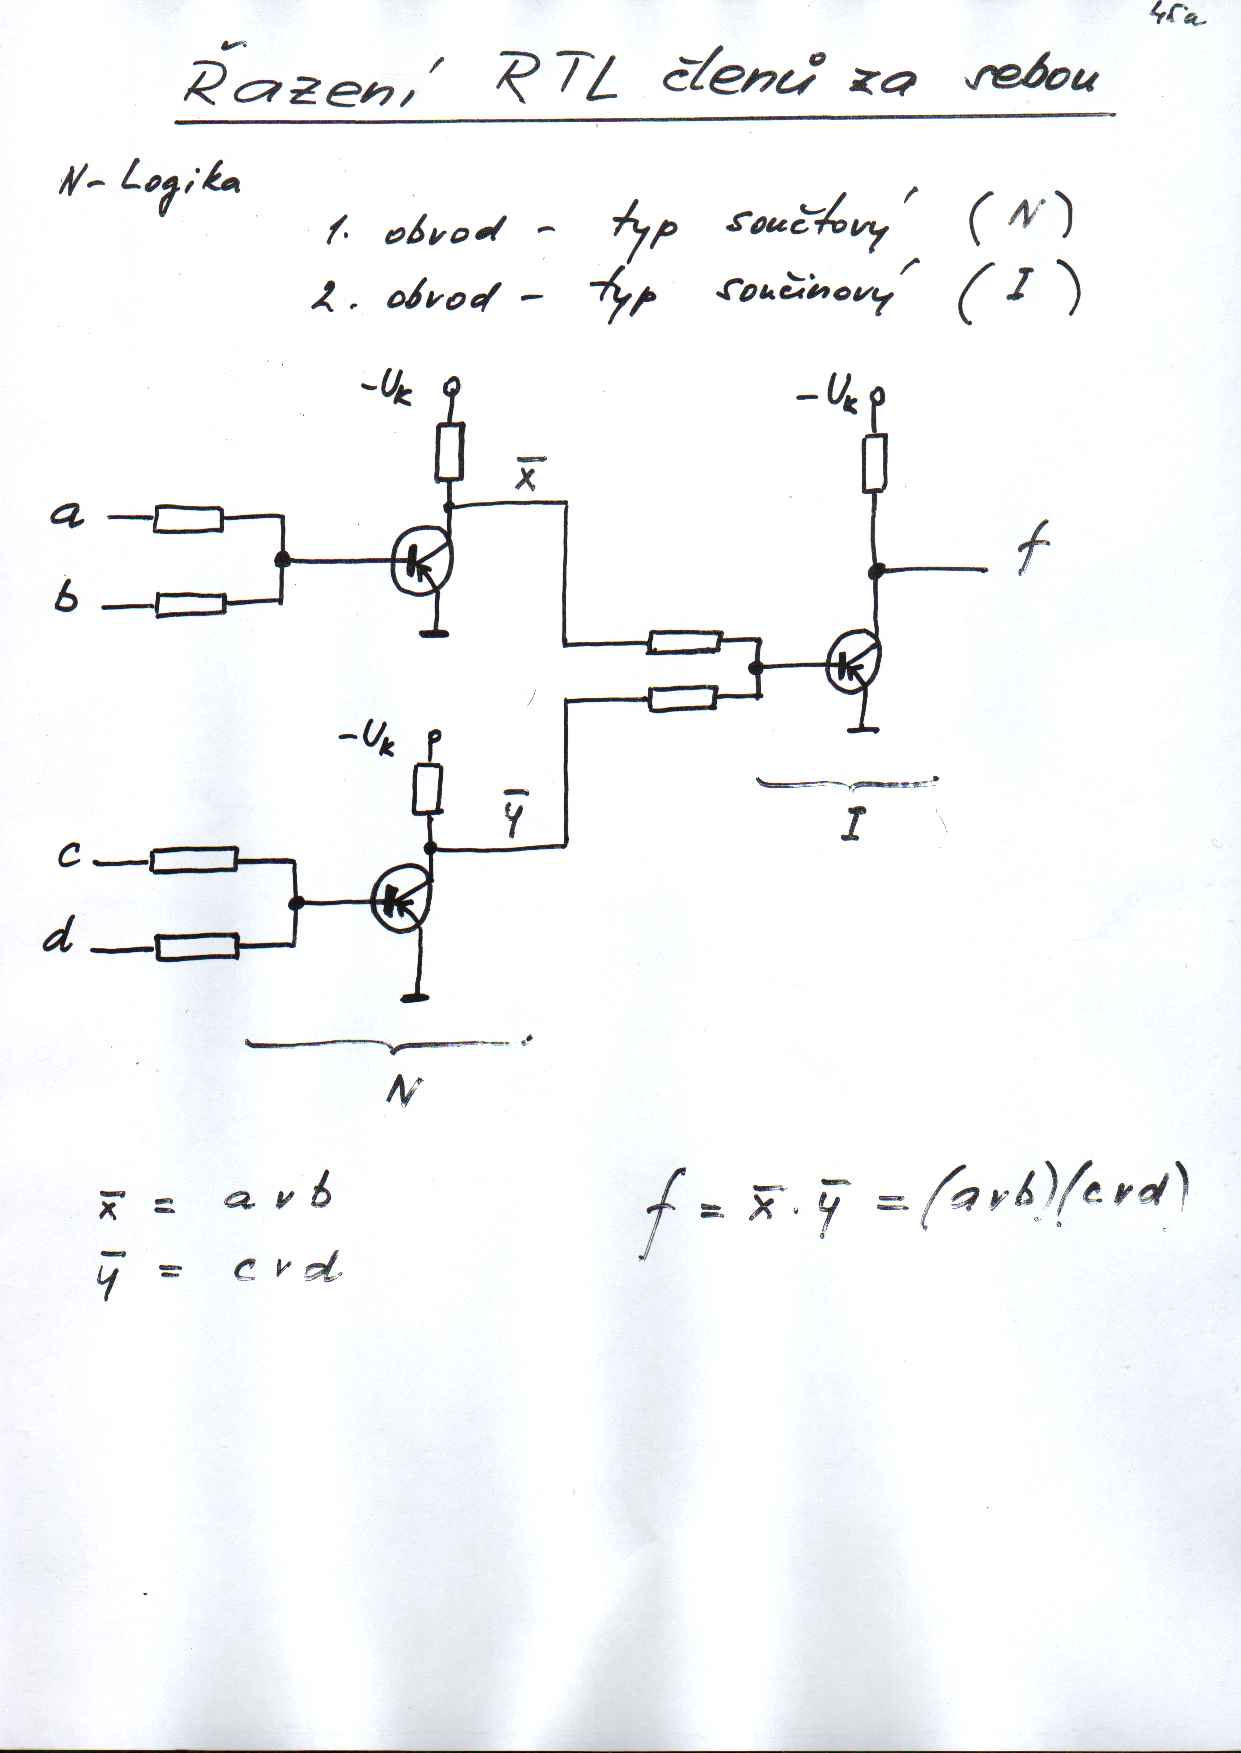 45a
Řazení RTL členů za sebou
N-Logika
1. obvod - typ součtový (N)
2. obvod - typ součinový (I)
-UK
-UK
x̅
a
f
b
-UK
y̅
I
c
d
N
x̅ = a v b
f = x̅ . y̅ = (avb)(cvd)
y̅ = c v d